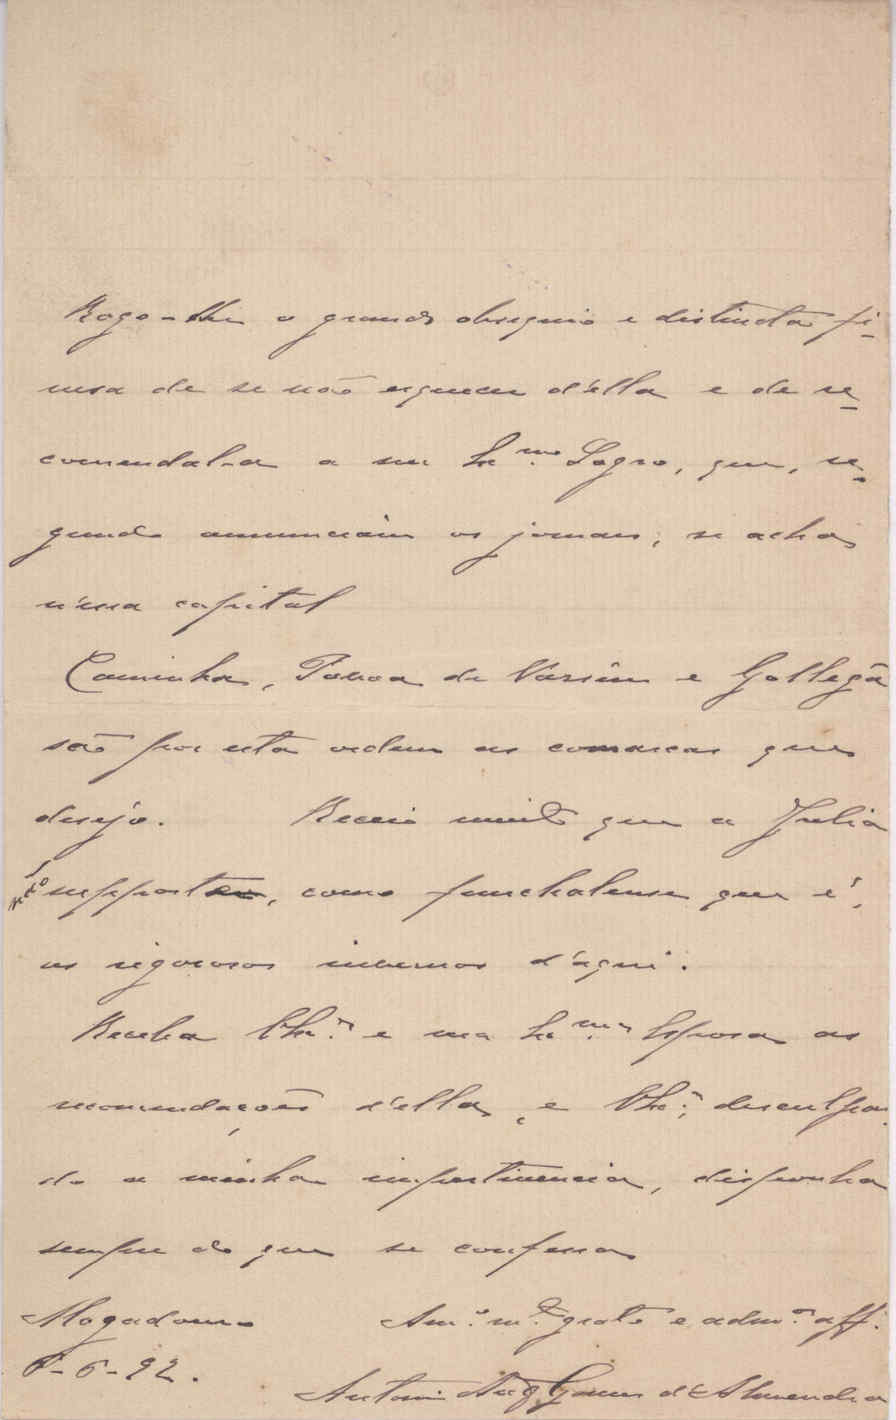 Rogo-lhe o grande obsequio e distincta fi-
nesa de se não esquecer d'ella e de re-
comendal-a a seu Ex.mo Sogro, que, se-
gundo annunciam os jornaes, se acha
n'essa capital
Caminha, Povoa de Varzim e Gollegã
são por esta ordem as comarcas que
desejo. Receio muito que a Julia
não supporte, como funchalense que é,
os rigorosos invernos d'aqui.
Receba V. Ex.a e sua Ex.ma Esposa as
recomendações d'ella, e V. Ex.a, desculpan-
do a minha impertinencia, disponha
sempre do que se confessa
Mogadouro Am.o m.to grato e adm.or aff.
6-92. Antonio Aug Gomes d'Almendra